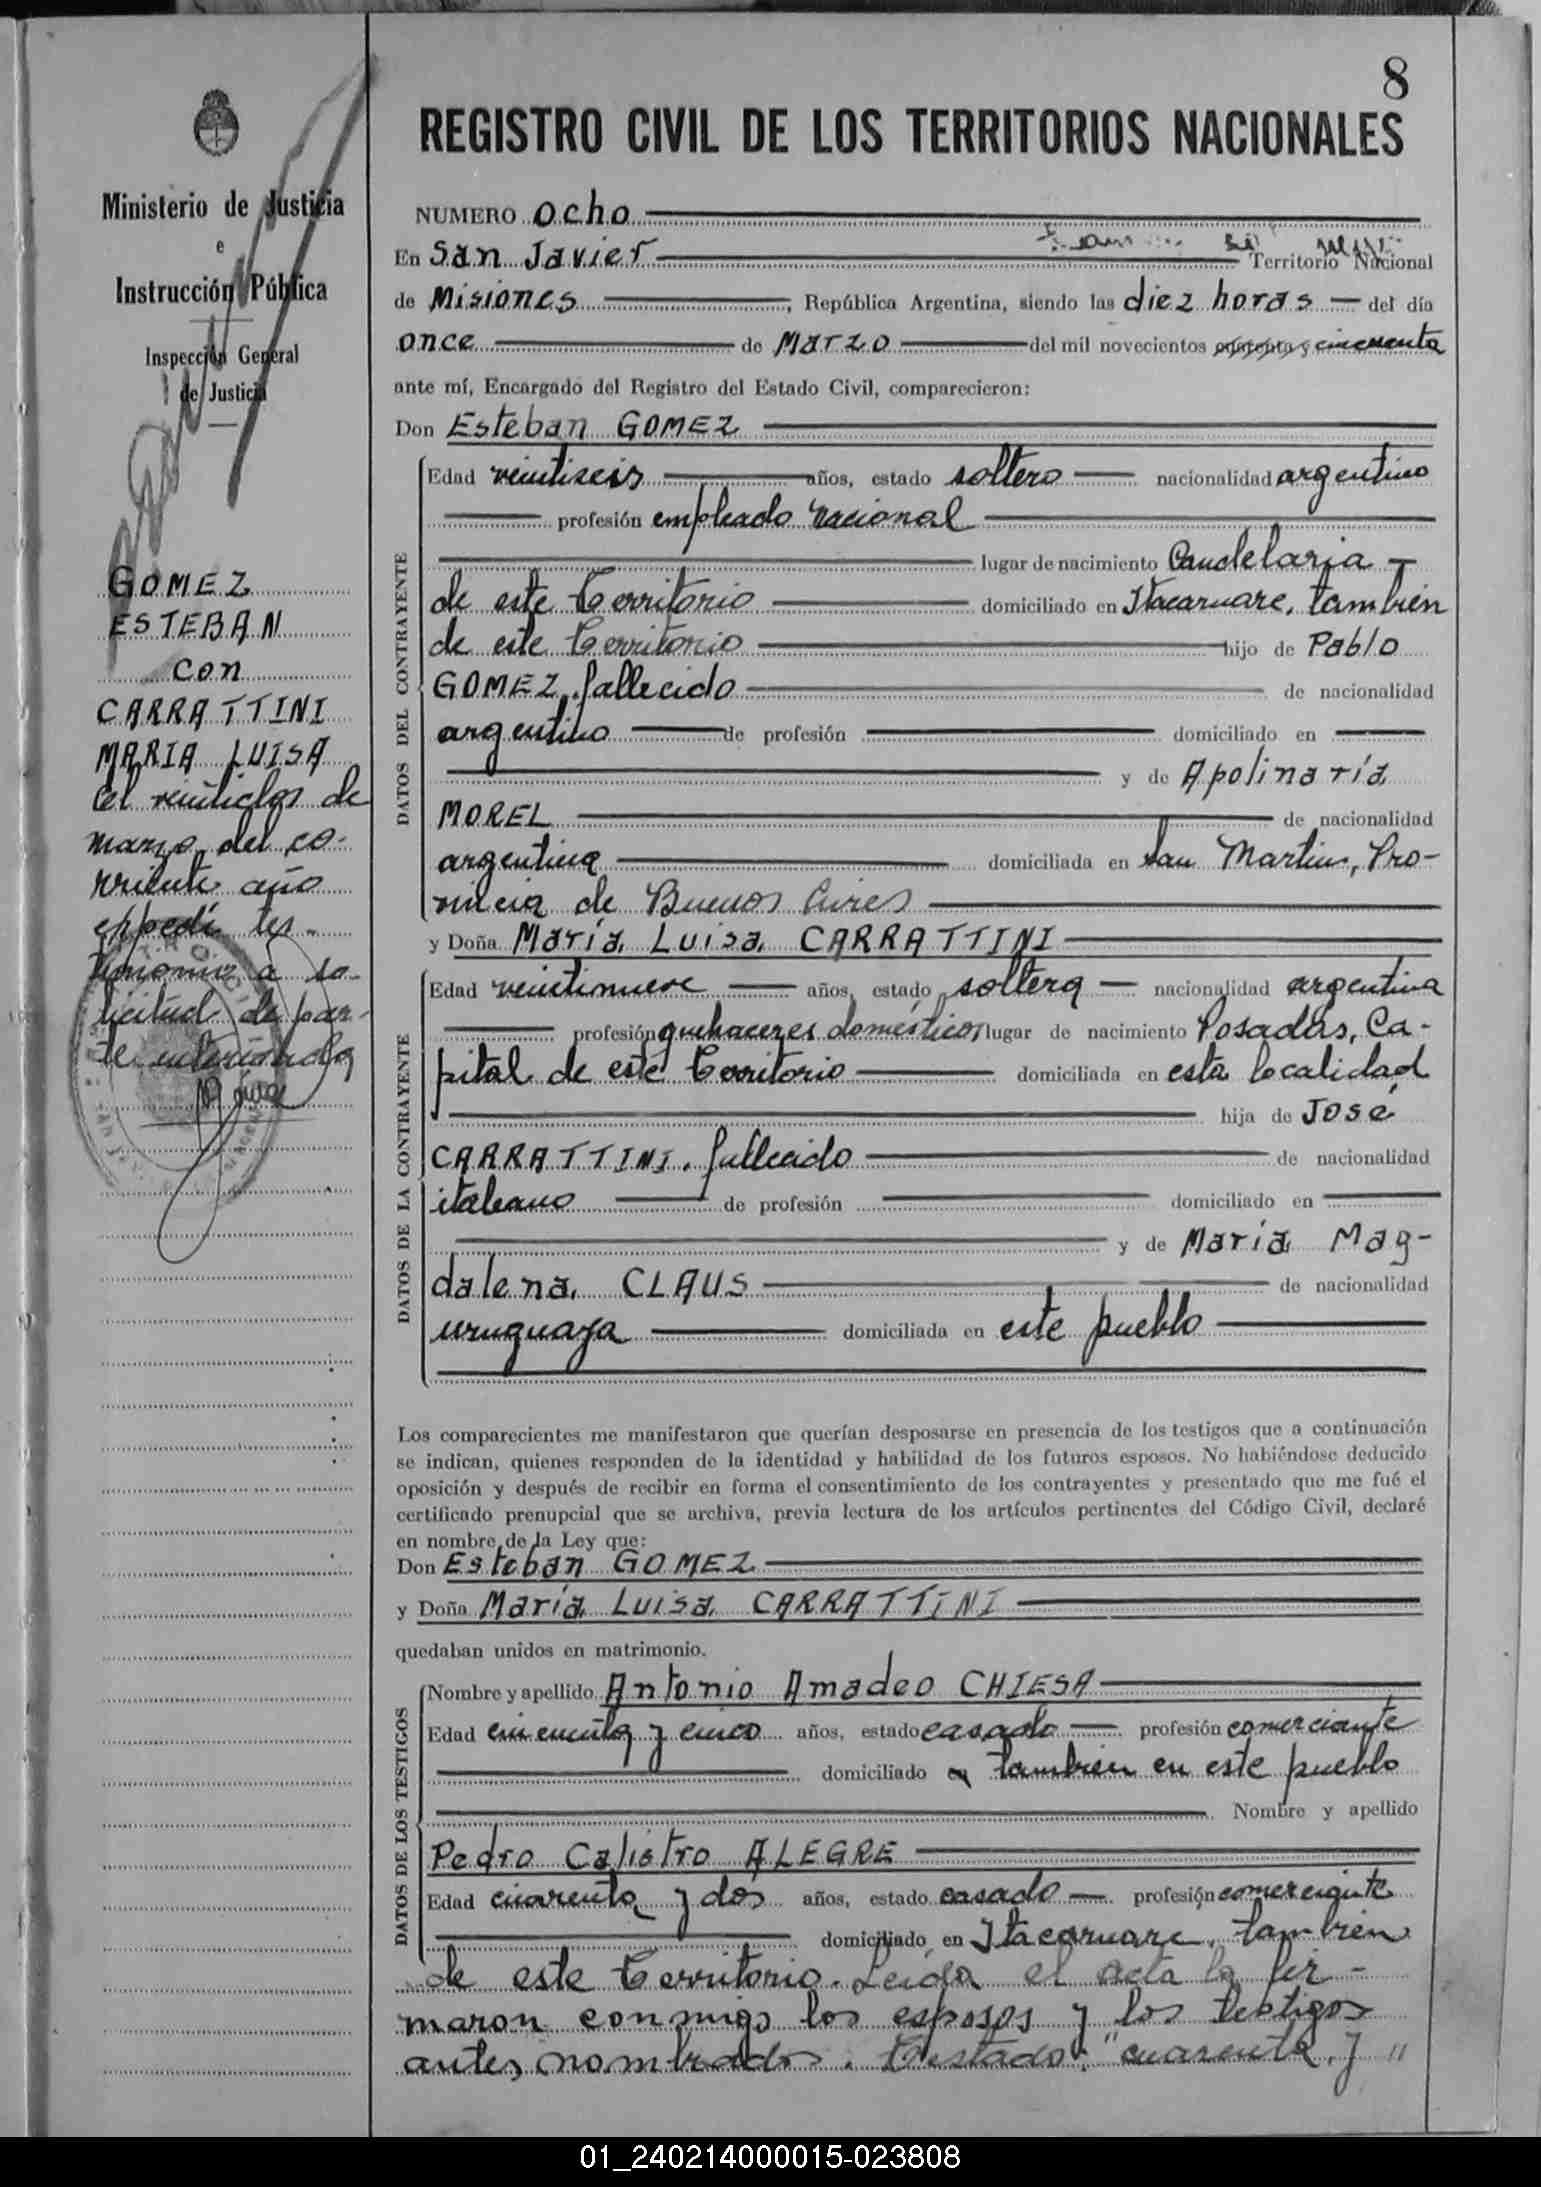 8
REGISTRO CIVIL DE LOS TERRITORIOS NACIONALES
Ministerio de Justicia
e
Instrucción Pública
Inspección General
de Justicia
GOMEZ
ESTEBAN
con
CARRATTINI
MARIA LUISA
El veintidos de
marzo del co-
rriente año
expedí tes-
timonio a so-
licitud de par-
te interesada
NUMERO ocho
En San Javier Territorio Nacional
de Misiones, República Argentina, siendo las diez horas del día
once de Marzo del mil novecientos cuarenta y cincuenta
ante mí, Encargado del Registro del Estado Civil, comparecieron:
Don Esteban GOMEZ
DATOS DEL CONTRAYENTE
Edad veintiseis años, estado soltero nacionalidad argentino
profesión empleado nacional
lugar de nacimiento Candelaria
de este Territorio domiciliado en Itacaruare, también
de este Territorio hijo de Pablo
GOMEZ, fallecido de nacionalidad
argentino de profesión domiciliado en
y de Apolinaria
MOREL de nacionalidad
argentina domiciliada en San Martin, Pro-
vincia de Buenos Aires
y Doña María Luisa CARRATTINI
DATOS DE LA CONTRAYENTE
Edad veintinueve años, estado soltera nacionalidad argentina
profesión quehaceres domésticos lugar de nacimiento Posadas, Ca-
pital de este Territorio domiciliada en esta localidad
hija de José
CARRATTINI, fallecido de nacionalidad
italiano de profesión domiciliado en
y de María Mag-
dalena CLAUS de nacionalidad
uruguaya domiciliada en este pueblo
Los comparecientes me manifestaron que querían desposarse en presencia de los testigos que a continuación
se indican, quienes responden de la identidad y habilidad de los futuros esposos. No habiéndose deducido
oposición y después de recibir en forma el consentimiento de los contrayentes y presentado que me fué el
certificado prenupcial que se archiva, previa lectura de los artículos pertinentes del Código Civil, declaré
en nombre de la Ley que:
Don Esteban GOMEZ
y Doña María Luisa CARRATTINI
quedaban unidos en matrimonio.
DATOS DE LOS TESTIGOS
Nombre y apellido Antonio Amadeo CHIESA
Edad cincuenta y cinco años, estado casado profesión comerciante
domiciliado en también en este pueblo
Nombre y apellido
Pedro Calistro ALEGRE
Edad cuarenta y dos años, estado casado profesión comerciante
domiciliado en Itacaruare, también
de este Territorio. Leída el acta la fir-
maron conmigo los esposos y los testigos
antes nombrados. Testado: "cuarenta y"
01_240214000015-023808